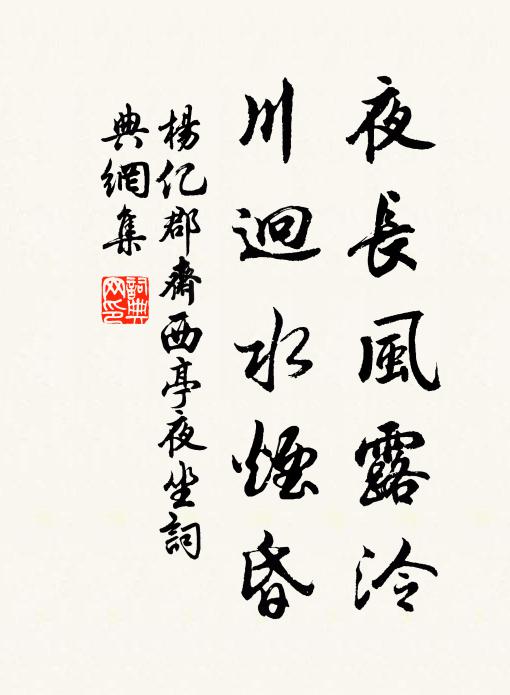 夜長風露泠
川迥水煙昏
楊亿郡齋西亭夜坐詞
典網集
詞典
网印